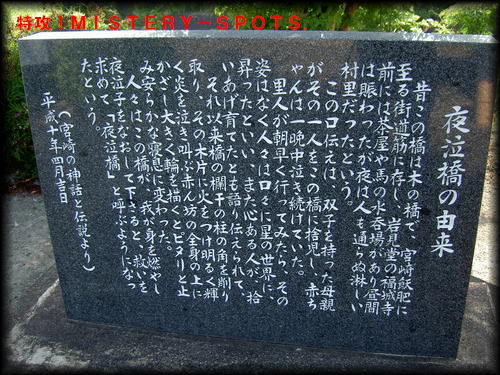 特攻!MISTERY-SPOTS.
夜泣橋の由来
昔この橋は木の橋で、宮崎飫肥に
至る街道筋に存し、岩見堂の福城寺
前には茶屋や馬の水呑場があり昼間
は賑わったが夜は人も通らぬ淋しい
村里だったという。
この口伝えは、双子を持った母親
がその一人をこの橋に捨児し、赤ち
ゃんは一晩中泣き続けていた。
里人が朝早く行ってみたら、その
姿はなく人々は口々に星の世界に
昇ったといい、また心ある人が、拾
いあげ育てたとも語り伝えられて、
それ以来橋の欄干の柱の角を削り
取り、その木片に火をつけ明るく輝
く炎を泣き叫ぶ赤ん坊の全身の上に
かざし大きく輪を描くとピタリと止
み安らかな寝息に変わった。
人々はこの橋が、我が身を燃やし
夜泣子をなおして下さると、救いを
求めて「夜泣橋」と呼ぶようになっ
たという。
(宮崎の神話と伝説より)
平成十年四月吉日